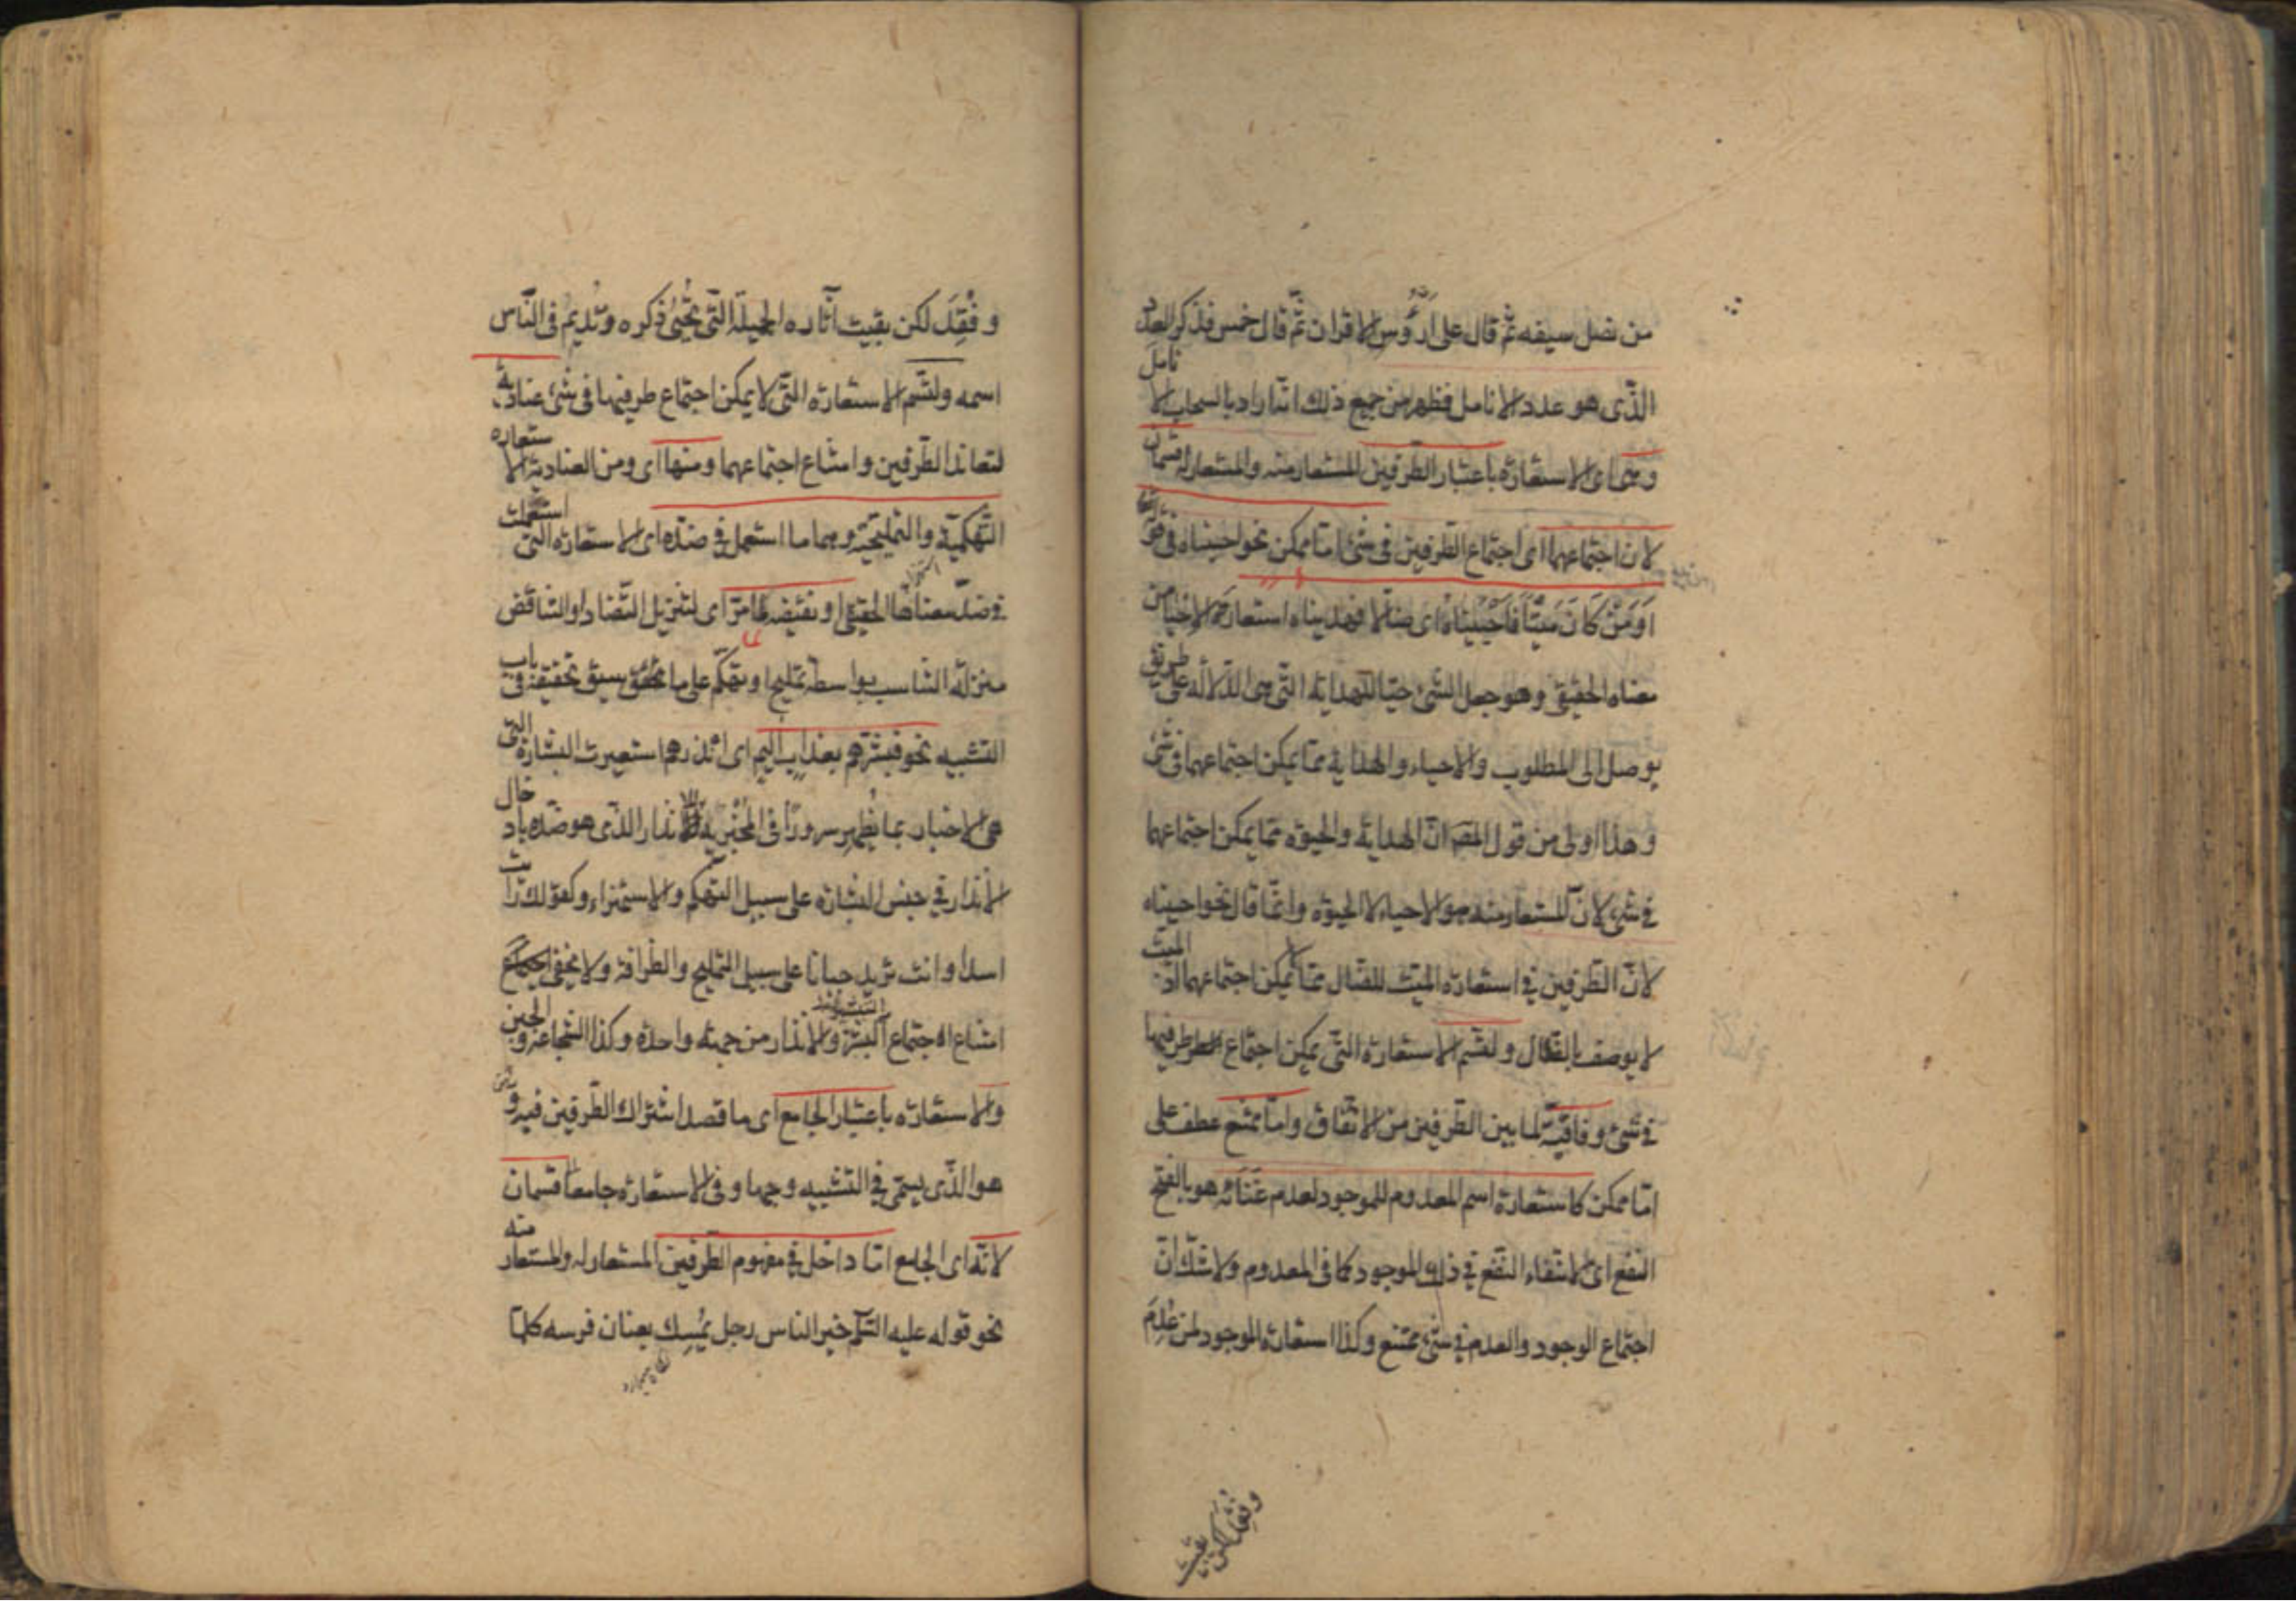 من نصل سيفه ثم قال على ارؤس الاقران ثم قال خمس فذكر العدد
الذى هو عدد الانامل فظهر من جميع ذلك انه اراد بالسحاب الانامل
وهى اى الاستعارة باعتبار الطرفين المستعار منه والمستعار له قسمان
لان اجتماعهما اى اجتماع الطرفين فى شئ اما ممكن نحو احييناه فى قوله
اَوَمَنْ كَانَ مَيْتًا فَاَحْيَيْنَاهُ اى ضالا فهديناه استعار الاحياء من
معناه الحقيقى وهو جعل الشئ حيا للهداية التى هى الدلالة على طريق
يوصل الى المطلوب والاحياء والهداية مما يمكن اجتماعهما فى شئ
وهذا اولى من قول المصـ ان الهداية والحيوة مما يمكن اجتماعهما
فى شئ لان المستعار منه هو الاحياء لا الحيوة وانما قال نحو احييناه
لان الطرفين فى استعارة الميت للضال مما لا يمكن اجتماعهما اذ الميت
لا يوصف بالضلال ولتسم الاستعارة التى يمكن اجتماع طرفيها
فى شئ وفاقية لما بين الطرفين من الاتفاق واما ممتنع عطف على
اما ممكن كاستعارة اسم المعدوم للموجود لعدم غَنَائه هو بالفتح
النفع اى لانتفاء النفع فى ذلك الموجود كما فى المعدوم ولا شك ان
اجتماع الوجود والعدم فى شئ ممتنع وكذا استعارة الموجود لمن عُدِمَ
وفقد لكن بقيت
و فُقِدَ لكن بقيت آثاره الجميلة التى تحيى ذكره وتُديم فى الناس
اسمه ولتسم الاستعارة التى لا يمكن اجتماع طرفيها فى شئ عنادية
لتعاند الطرفين وامتناع اجتماعهما ومنها اى ومن العنادية الاستعارة
التهكمية والتمليحية وهما ما استعمل فى ضده اى الاستعارة التى استعملت
فى ضد معناها الحقيقى او نقيضه لما مر اى لتنزيل التضاد او التناقض
منزلة التناسب بواسطة تمليح او تهكم على ما سبق تحقيقه فى باب
التشبيه نحو فبشرهم بعذاب اليم اى انذرهم استعيرت البشارة التى
هى الاخبار بما يُظهِر سرورًا فى المُخْبَر به للانذار الذى هو ضده بادخال
الانذار فى جنس البشارة على سبيل التهكم والاستهزاء وكقولك رايت
اسدا وانت تريد جبانا على سبيل التمليح والظرافة ولا يخفى
امتناع اجتماع التبشير والانذار من جهة واحدة وكذا الشجاعة والجبن
والاستعارة باعتبار الجامع اى ما قصد اشتراك الطرفين فيه و
هو الذى يسمى فى التشبيه وجها وفى الاستعارة جامعا قسمان
لانه اى الجامع اما داخل فى مفهوم الطرفين المستعار له والمستعار منه
نحو قوله عليه السلام خير الناس رجل يُمْسِك بعنان فرسه كلما